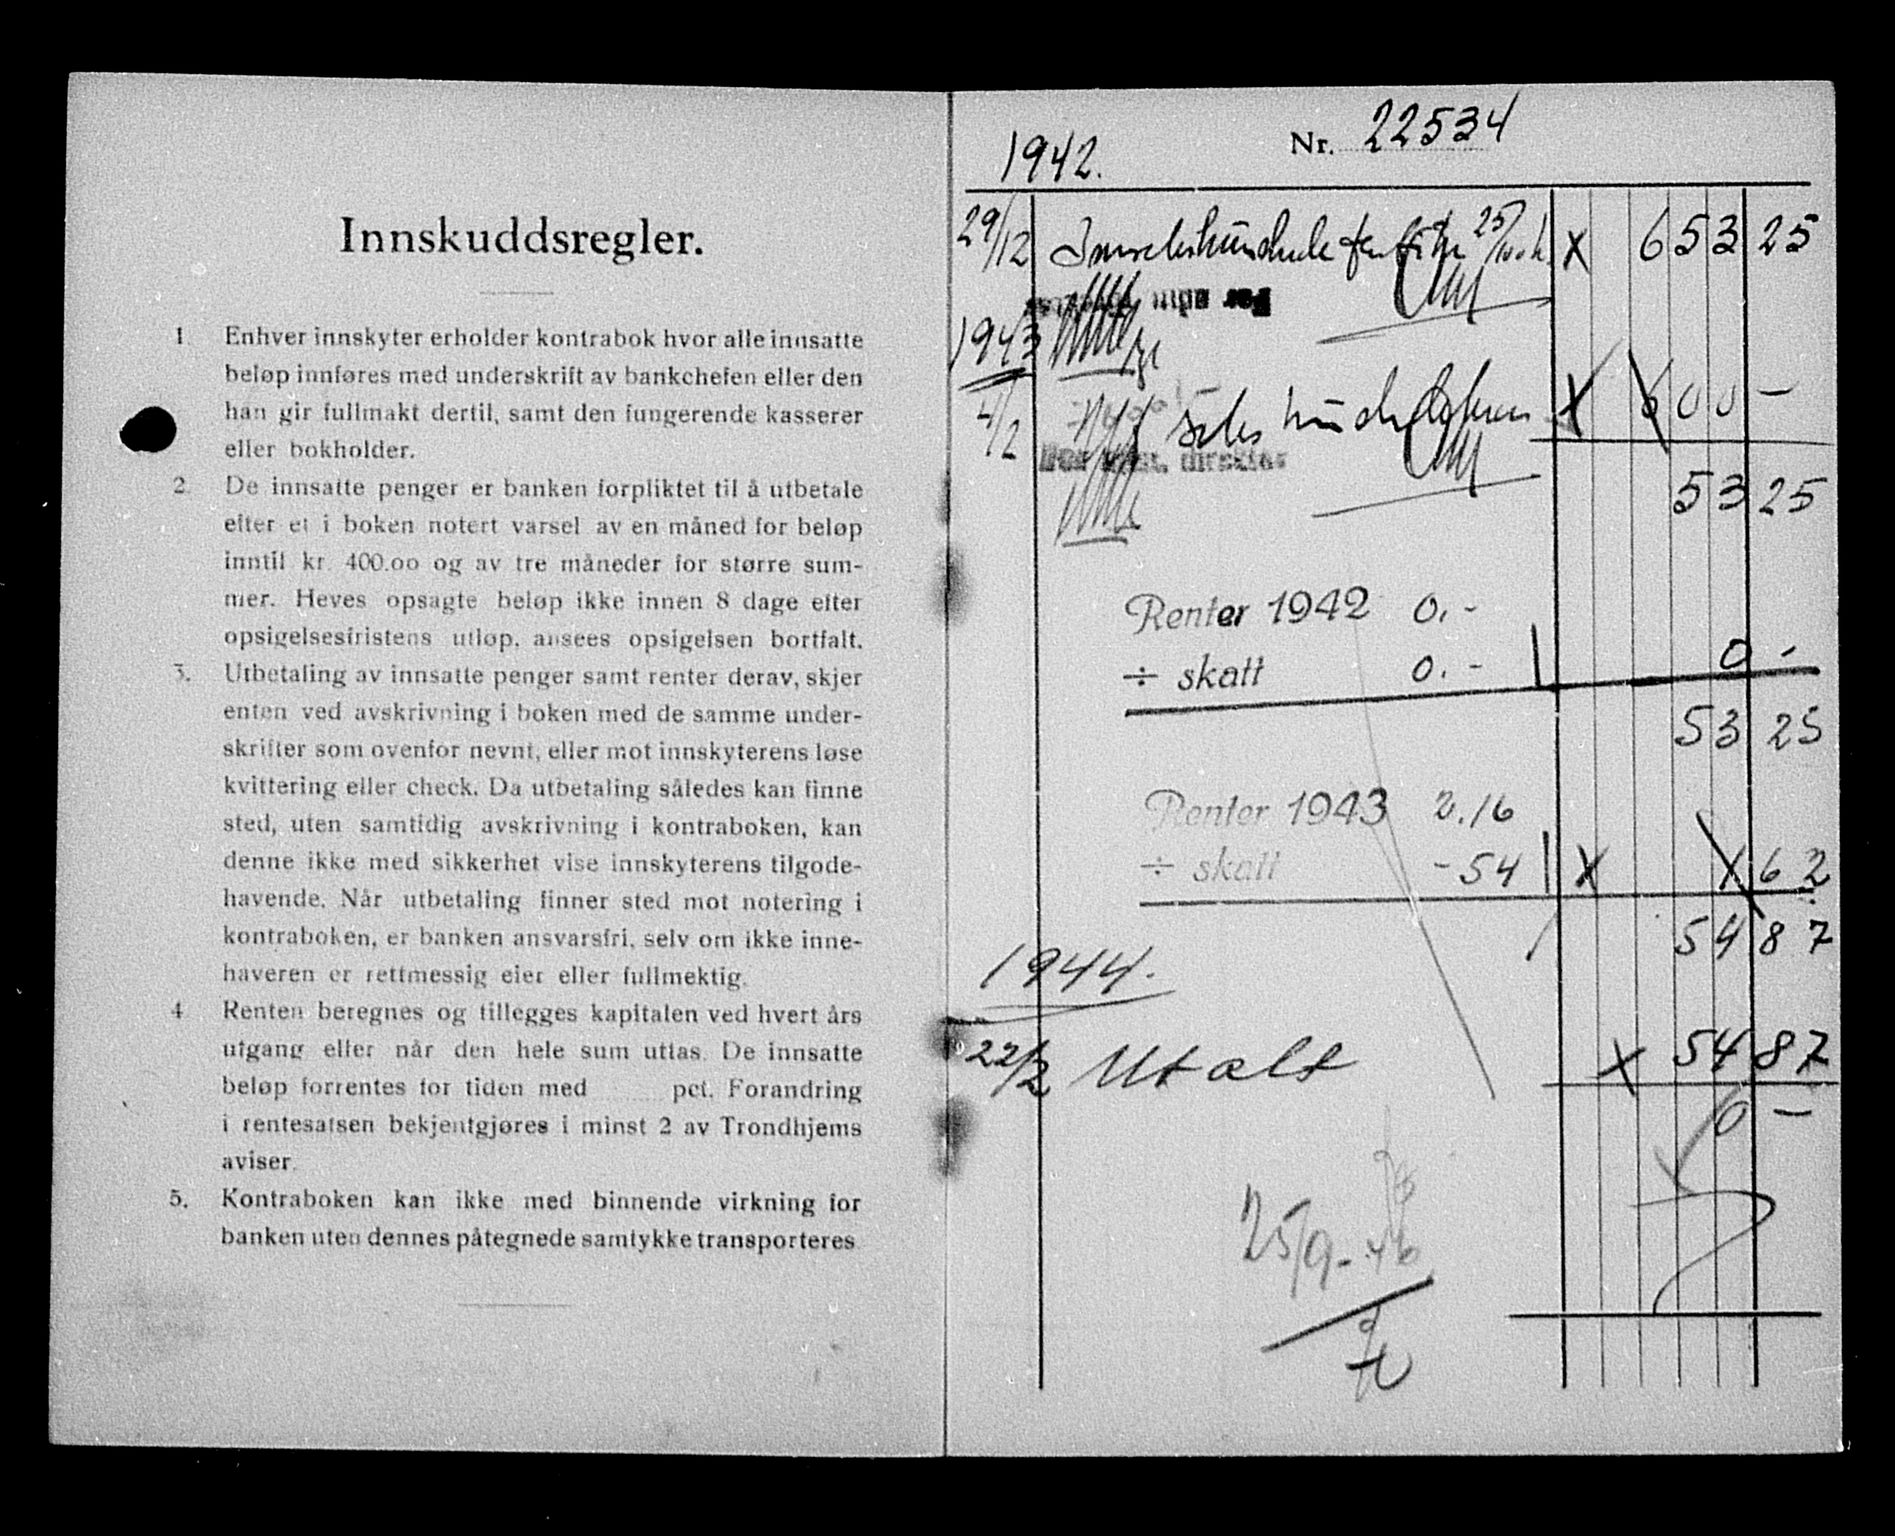 Innskuddsregler.
1. Enhver innskyter erholder kontrabok hvor alle innsatte
beløp innføres med underskrift av bankchefen eller den
han gir fullmakt dertil, samt den fungerende kasserer
eller bokholder.
2. De innsatte penger er banken forpliktet til å utbetale
efter et i boken notert varsel av en måned for beløp
inntil kr. 400.00 og av tre måneder for større sum-
mer. Heves opsagte beløp ikke innen 8 dage efter
opsigelsesfristens utløp, ansees opsigelsen bortfalt.
3. Utbetaling av innsatte penger samt renter derav, skjer
enten ved avskrivning i boken med de samme under-
skrifter som ovenfor nevnt, eller mot innskyterens løse
kvittering eller check. Da utbetaling således kan finne
sted, uten samtidig avskrivning i kontraboken, kan
denne ikke med sikkerhet vise innskyterens tilgode-
havende. Når utbetaling finner sted mot notering i
kontraboken, er banken ansvarsfri, selv om ikke inne-
haveren er rettmessig eier eller fullmektig.
4 Renten beregnes og tillegges kapitalen ved hvert års
utgang eller når den hele sum uttas. De innsatte
beløp forrentes for tiden med pct. Forandring
i rentesatsen bekjentgjøres i minst 2 av Trondhjems
aviser.
5. Kontraboken kan ikke med binnende virkning for
banken uten dennes påtegnede samtykke transporteres
Nr. 22534
1942.
29/12 25/100 k. x 653 25
For adm.
1943
2/2 x 600 -
For adm. direktør
53 25
Renter 1942 0.-
÷ skatt 0.- 0 -
53 25
Renter 1943 2.16
÷ skatt - 54 x 1 62
54 87
1944.
22/2 Utalt x 54 87
0 -
25/9-46